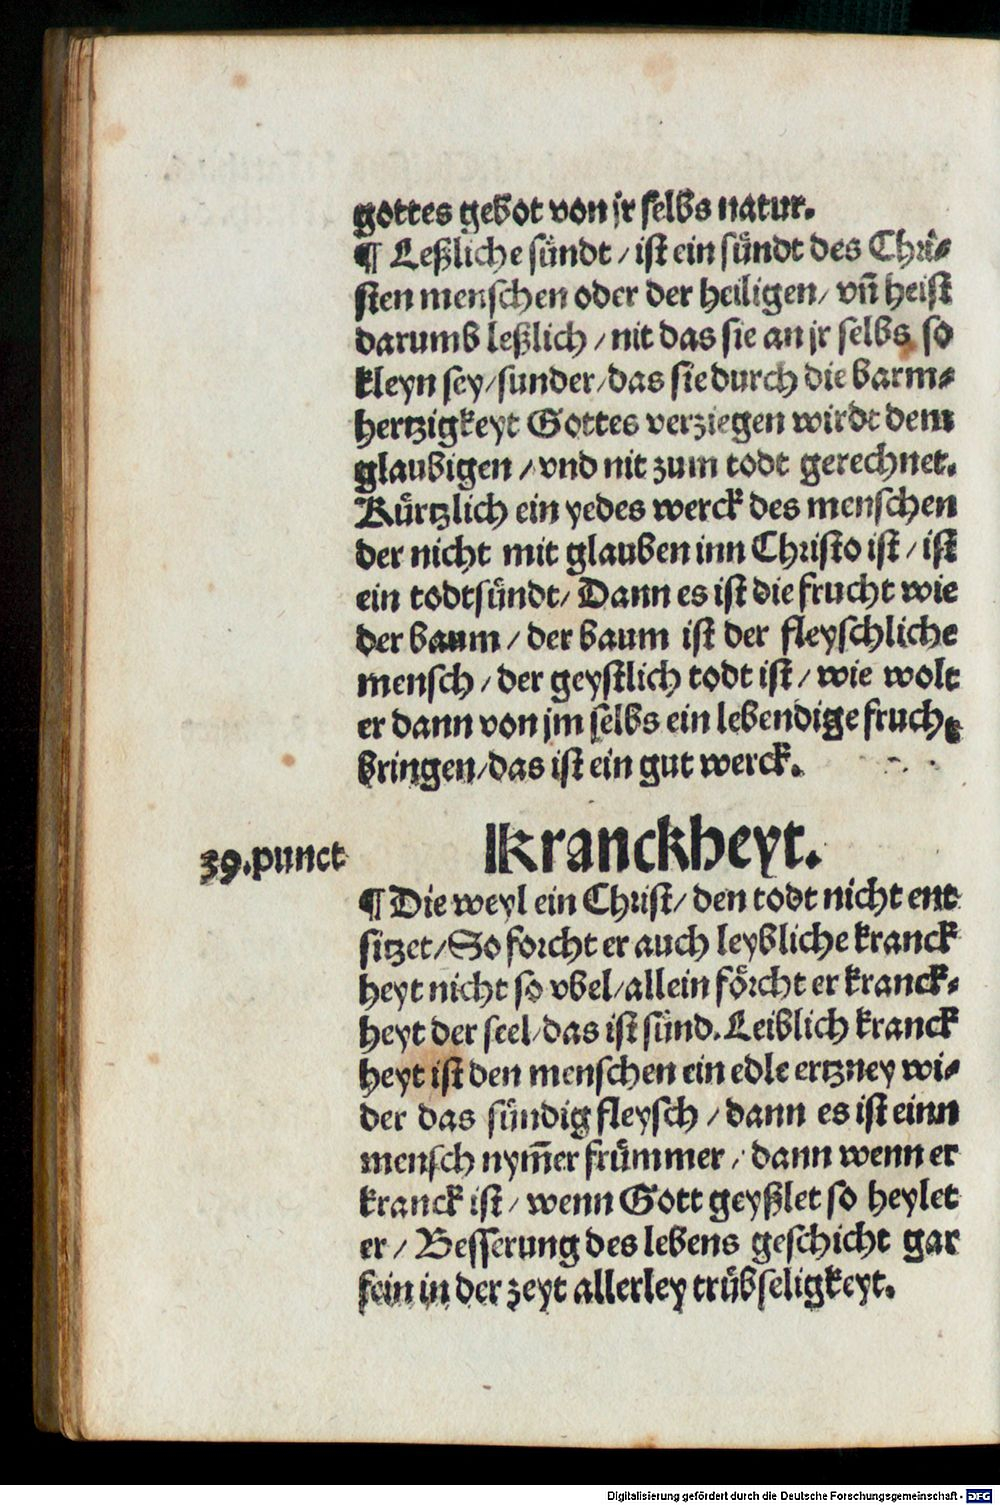 gottes gebot von jr selbs natur.
¶ Leßliche sündt / ist ein sündt des Chri⸗
sten menschen oder der heiligen / vñ heist
darumb leßlich / nit das sie an jr selbs so
kleyn sey / sunder / das sie durch die barm⸗
hertzigkeyt Gottes verziegen wirdt dem
glaubigen / vnd nit zum todt gerechnet.
Kürtzlich ein yedes werck des menschen
der nicht mit glauben inn Christo ist / ist
ein todtsündt / Dann es ist die frucht wie
der baum / der baum ist der fleyschliche
mensch / der geystlich todt ist / wie wolt
er dann von jm selbs ein lebendige frucht
bringen / das ist ein gut werck.
Kranckheyt.
39. punct
¶ Die weyl ein Christ / den todt nicht ent
sitzet / So forcht er auch leybliche kranck
heyt nicht so vbel / allein förcht er kranck⸗
heyt der seel / das ist sünd. Leiblich kranck
heyt ist den menschen ein edle ertzney wi⸗
der das sündig fleysch / dann es ist einn
mensch nym̄er frümmer / dann wenn er
kranck ist / wenn Gott geyßlet so heylet
er / Besserung des lebens geschicht gar
fein in der zeyt allerley trübseligkeyt.
Digitalisierung gefördert durch die Deutsche Forschungsgemeinschaft - DFG